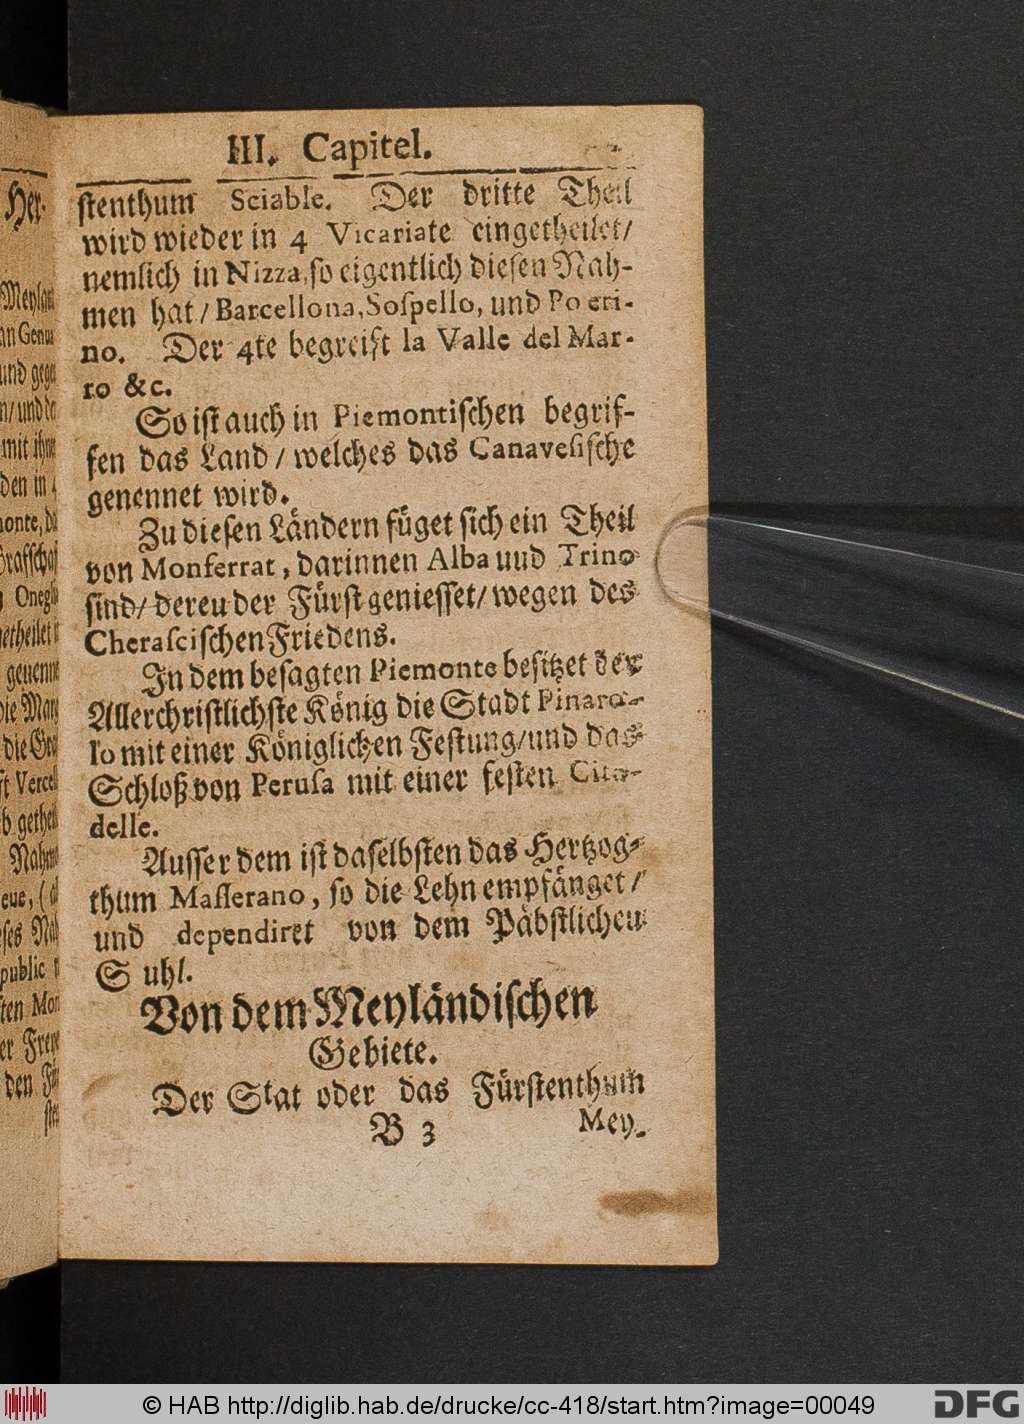 III. Capitel.
stenthum Sciable. Der dritte Theil
wird wieder in 4 Vicariate eingetheilet/
nemlich in Nizza, so eigentlich diesen Nah-
men hat / Barcellona, Sospello, und Po eri-
no. Der 4te begreift la Valle del Mar-
ro &c.
So ist auch in Piemontischen begrif-
fen das Land / welches das Canavesische
genennet wird.
Zu diesen Ländern füget sich ein Theil
von Monferrat, darinnen Alba uud Trino
sind / dereu der Fürst geniesset / wegen des
Cherascischen Friedens.
In dem besagten Piemonte besitzet der
Allerchristlichste König die Stadt Pinaro-
lo mit einer Königlichen Festung / und das
Schloß von Perusa mit einer festen Cita-
delle.
Ausser dem ist daselbsten das Hertzog-
thum Masserano, so die Lehn empfänget /
und dependiret von dem Päbstlichen
S uhl.
Von dem Meyländischen
Gebiete.
Der Stat oder das Fürstenthum
B 3 Mey-
Her-
© HAB http://diglib.hab.de/drucke/cc-418/start.htm?image=00049
DFG